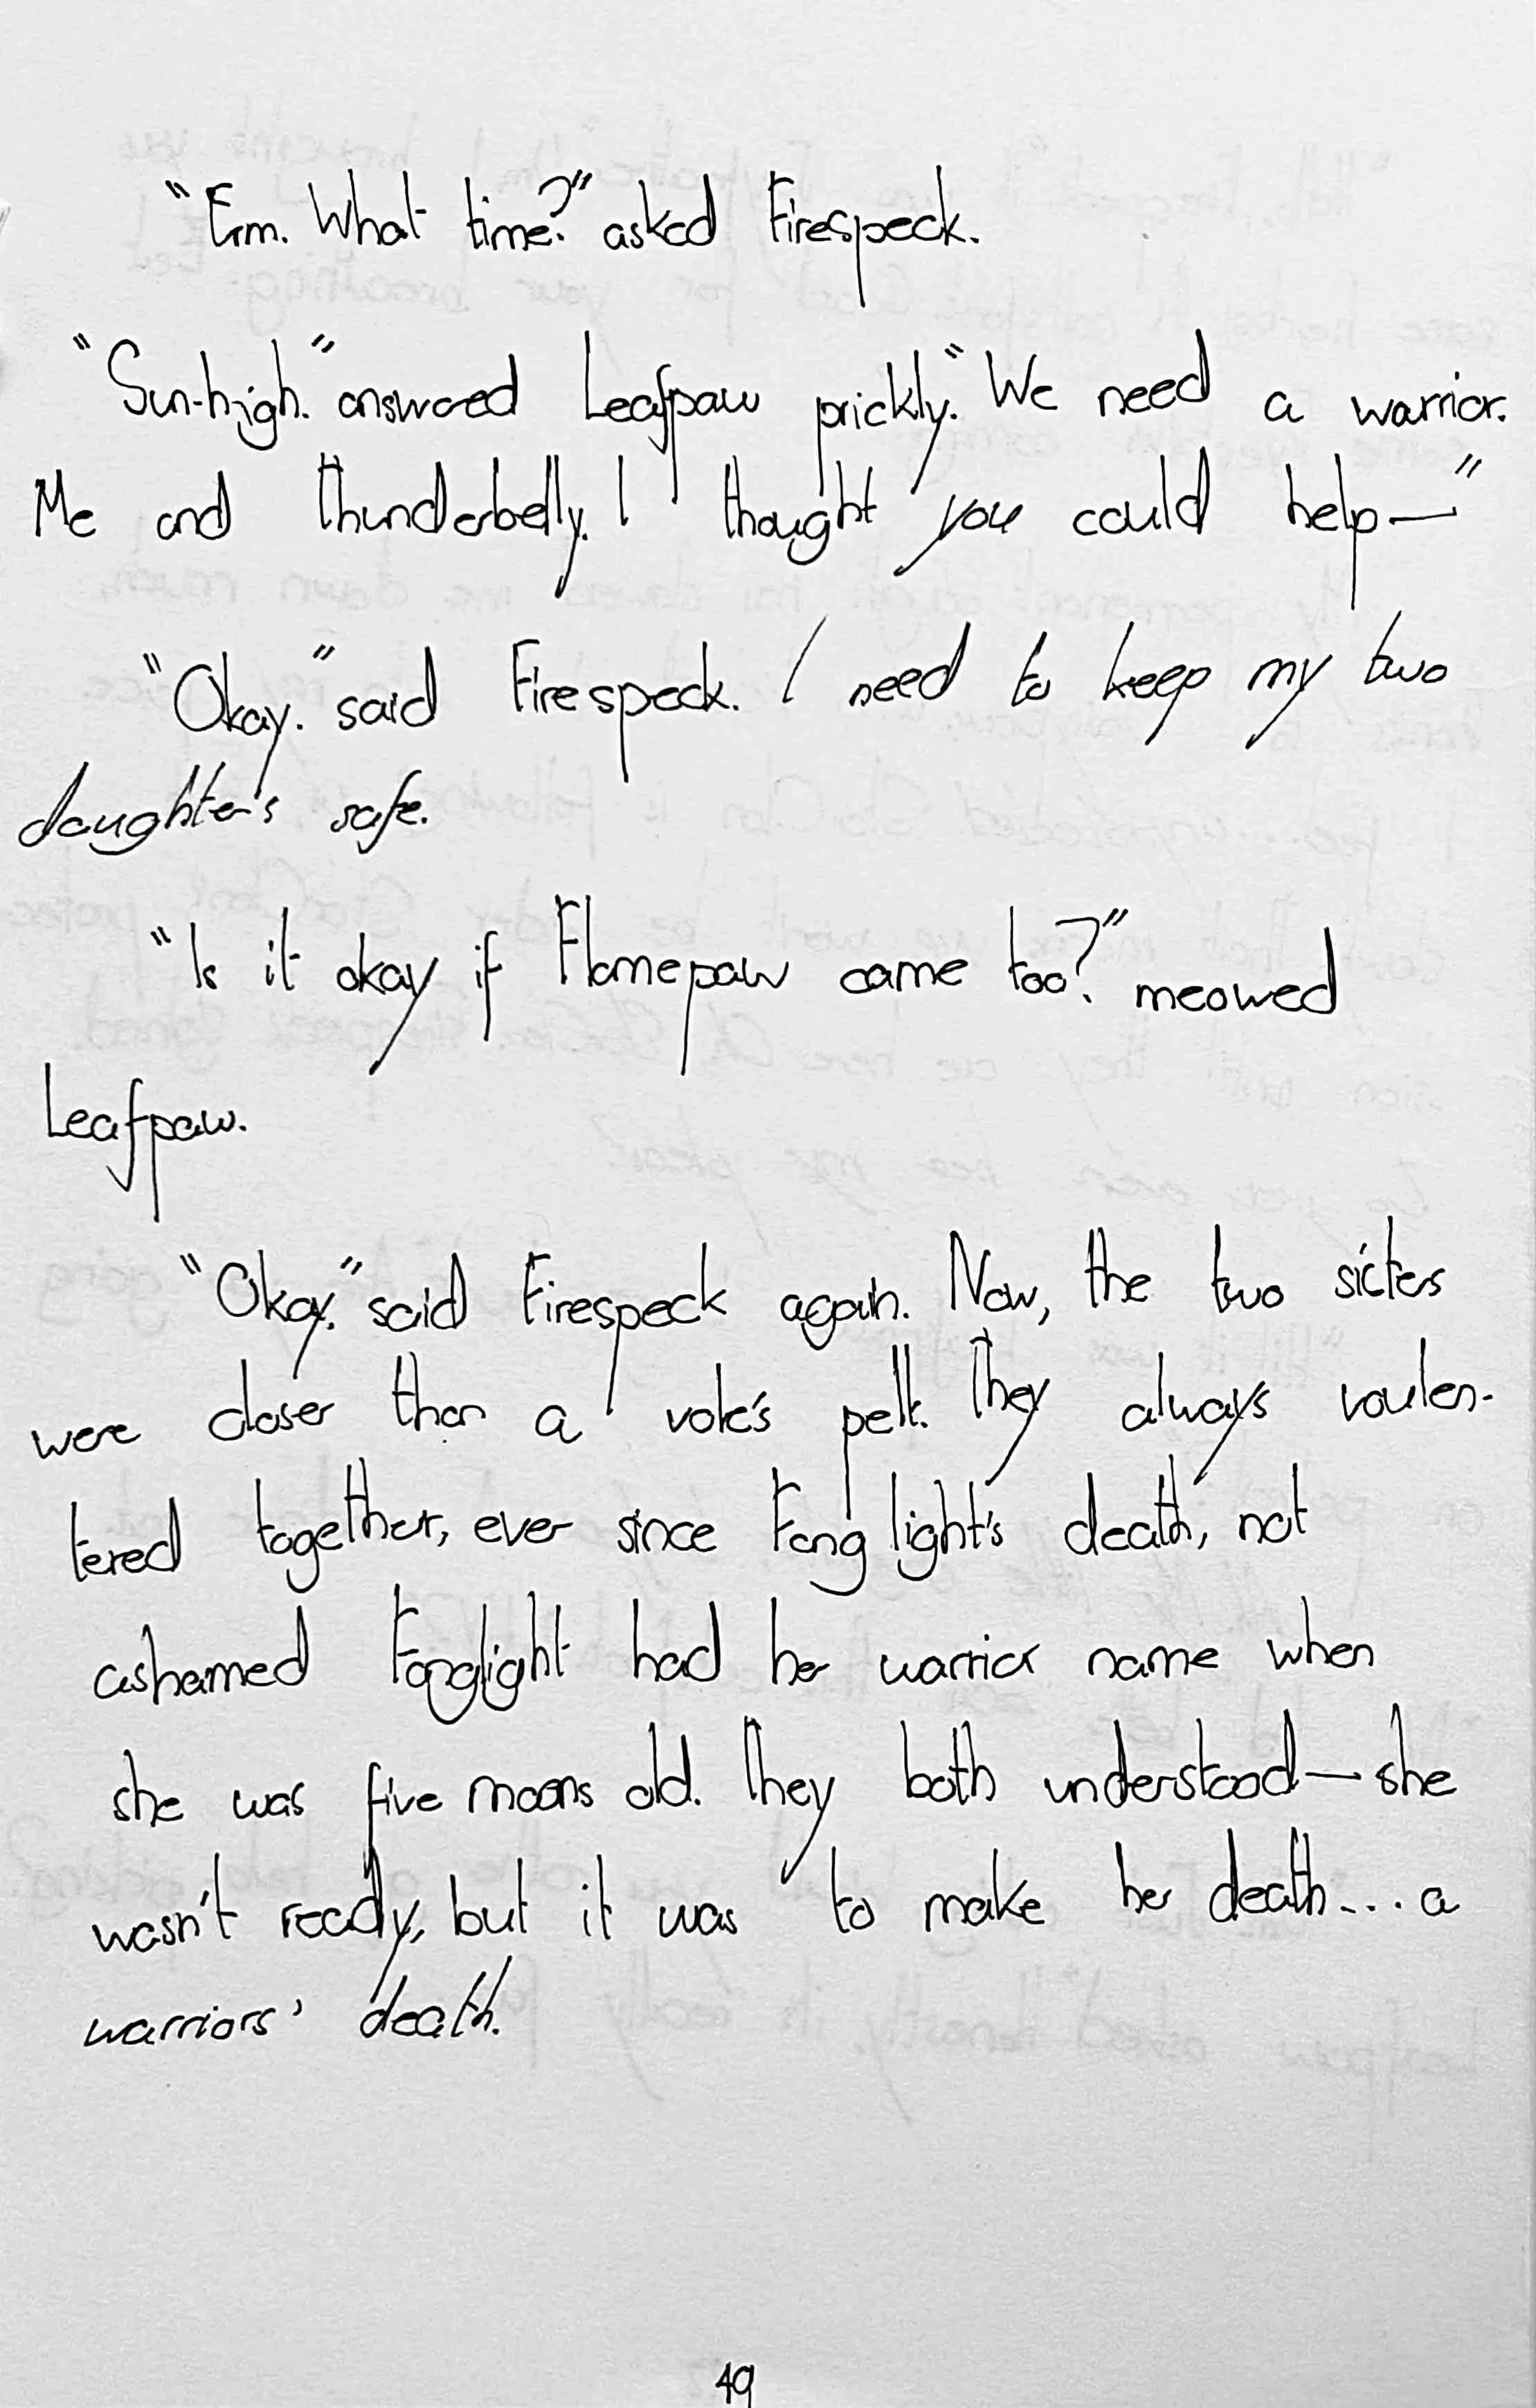 “Erm. What time?” asked Firespeck.
“Sun-high.” answered Leafpaw prickly. “We need a warrior.
Me and Thunderbelly. I thought you could help—”
“Okay.” said Firespeck. I need to keep my two
daughter's safe.
“Is it okay if Flamepaw came too?” meowed
Leafpaw.
“Okay.” said Firespeck again. Now, the two sisters
were closer than a vole's pelt. They always voulen-
tered together, ever since Fanglight's death, not
ashamed Fanglight had her warrior name when
she was five moons old. They both understood—she
wasn't ready, but it was to make her death... a
warriors' death.
49